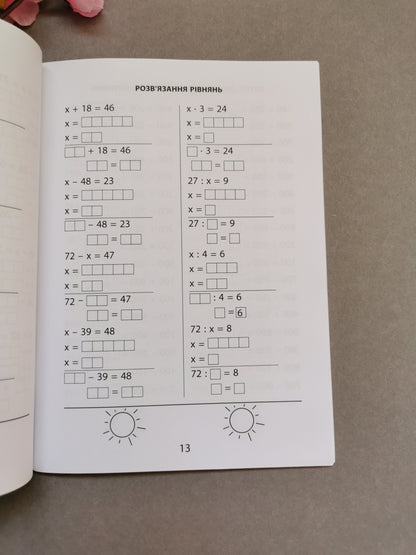 РОЗВ'ЯЗАННЯ РІВНЯНЬ
x + 18 = 46
x =
x =
+ 18 = 46
=
x – 48 = 23
x =
x =
– 48 = 23
=
72 – x = 47
x =
x =
72 – = 47
=
x – 39 = 48
x =
x =
– 39 = 48
=
x · 3 = 24
x =
x =
· 3 = 24
=
27 : x = 9
x =
x =
27 : = 9
=
x : 4 = 6
x =
x =
: 4 = 6
= 6
72 : x = 8
x =
x =
72 : = 8
=
13